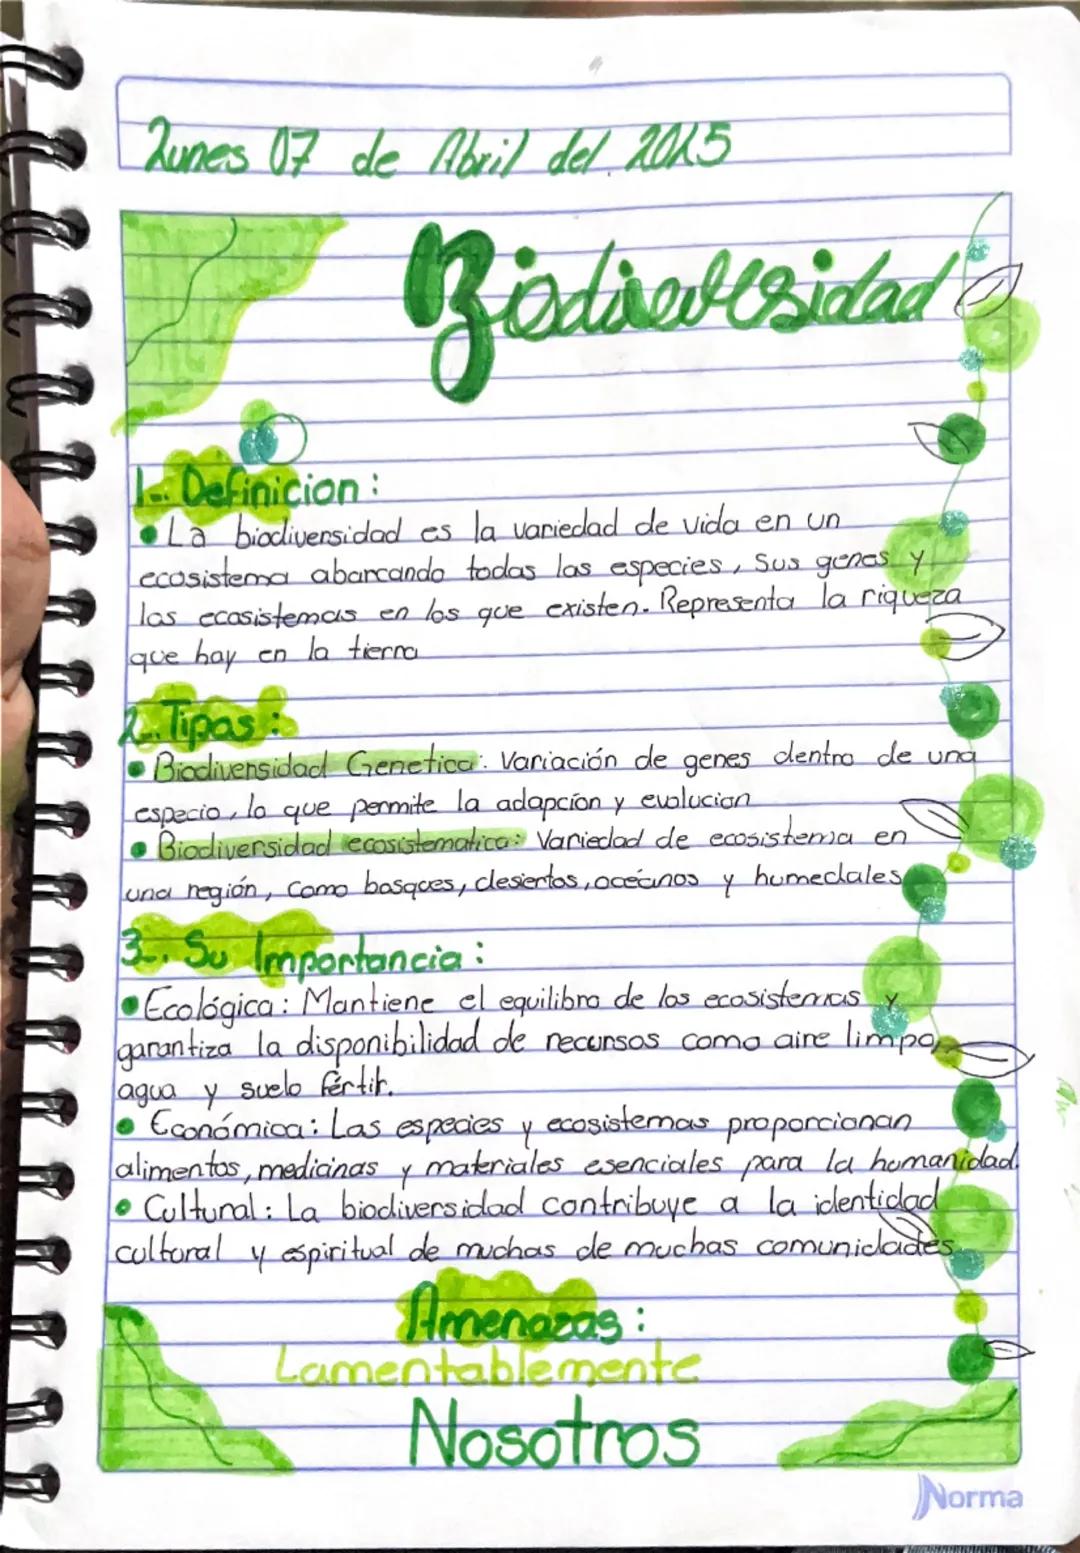 Lunes 07 de Abril del 2025
Biodiversidad
1.- Definicion:
• La biodiversidad es la variedad de vida en un
ecosistema abarcando todas las especies, Sus genes y
los ecosistemas en los que existen. Representa la riqueza
que hay en la tierra
2.- Tipos:
• Biodiversidad Genetica: Variación de genes dentro de una
especio, lo que permite la adapcion y evolucion
• Biodiversidad ecosistematica: Variedad de ecosistema en
una región, como bosques, desiertos, océanos y humedales
3.- Su Importancia:
• Ecológica: Mantiene el equilibro de los ecosistemas y
garantiza la disponibilidad de recursos como aire limpo,
agua y suelo fértil.
• Económica: Las especies y ecosistemas proporcionan
alimentos, medicinas y materiales esenciales para la humanidad.
• Cultural: La biodiversidad contribuye a la identidad
cultural y espiritual de muchas de muchas comunidades
Amenazas:
Lamentablemente
Nosotros
Norma